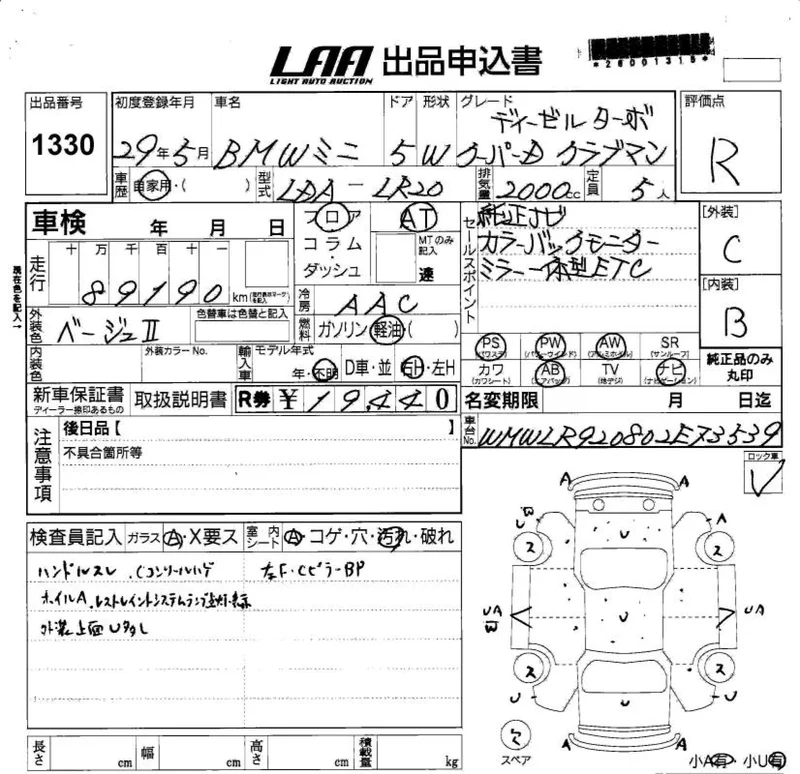 LAA 出品申込書
LIGHT AUTO AUCTION
*26001315*
出品番号 1330
初度登録年月 29年5月
車名 BMWミニ
ドア 5
形状 W
グレード ディーゼルターボ
クーパーD クラブマン
評価点 R
車歴 自家用・( )
型式 LDA-LR20
排気量 2000cc
定員 5人
車検 年 月 日
フロア
コラム・
ダッシュ
AT
MTのみ記入
速
セールスポイント
純正ナビ
カラーバックモニター
ミラー一体型ETC
[外装] C
[内装] B
現在色を記入
走行 十 万 千 百 十 一
89190 km (走行表示マークを記入)
冷房 AAC
外装色 ベージュII
色替車は色替と記入
燃料 ガソリン・軽油・( )
内装色
外装カラーNo.
輸入車
モデル年式
年・不明
D車・並
右H・左H
PS (パワステ)
PW (パワーウインド)
AW (アルミホイル)
SR (サンルーフ)
カワ (カワシート)
AB (エアバック)
TV (地デジ)
ナビ (ナビゲーション)
純正品のみ
丸印
新車保証書
ディーラー捺印あるもの
取扱説明書
R券 ¥19,440
名変期限 月 日迄
車台No. WMWLR920802E73539
注意事項
後日品【 】
不具合箇所等
ロック車
検査員記入
ガラス A・X要ス
室内シート A・コゲ・穴・汚れ・破れ
ハンドルスレ、Cコンソールハゲ 左F・CピラーBP
ホイルA、レストレイントシステムランプ点灯・表示
外装上面U多し
A A
U W A
ス ス
U
UA W U UA
ス ス
U U U
A A
スペア
小A有・小U有
長さ cm
幅 cm
高さ cm
積載量 kg